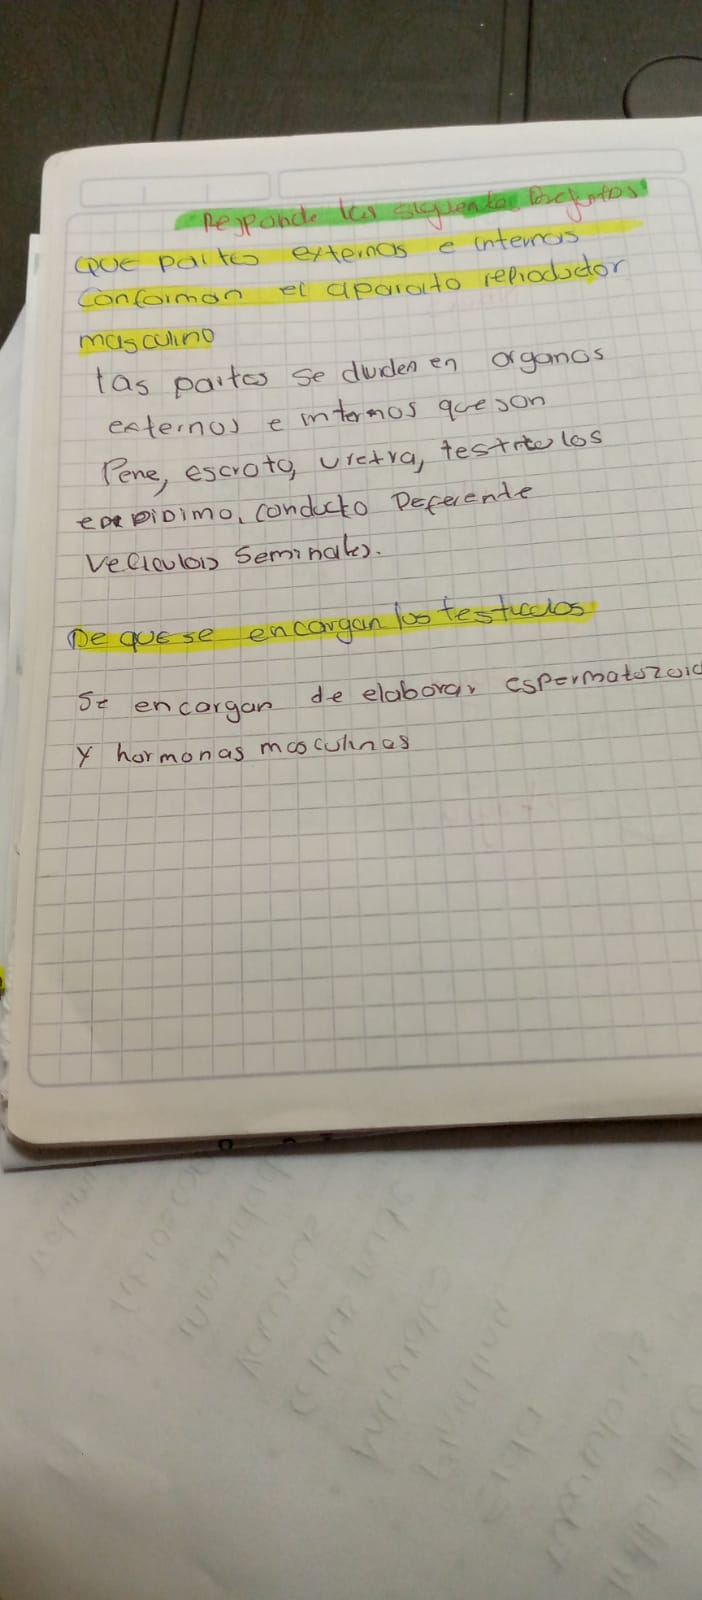 Responde las siguientes Preguntas
QUE partes externas e internas
Conforman el aparato reproductor
masculino
Las partes se dividen en organos
externos e internos que son
Pene, escroto, uretra, testiculos
epidimo, conducto Deferente
Vesiculas Seminales.
De que se encargan los testiculos
Se encargan de elaborar espermatozoid
y hormonas masculinas